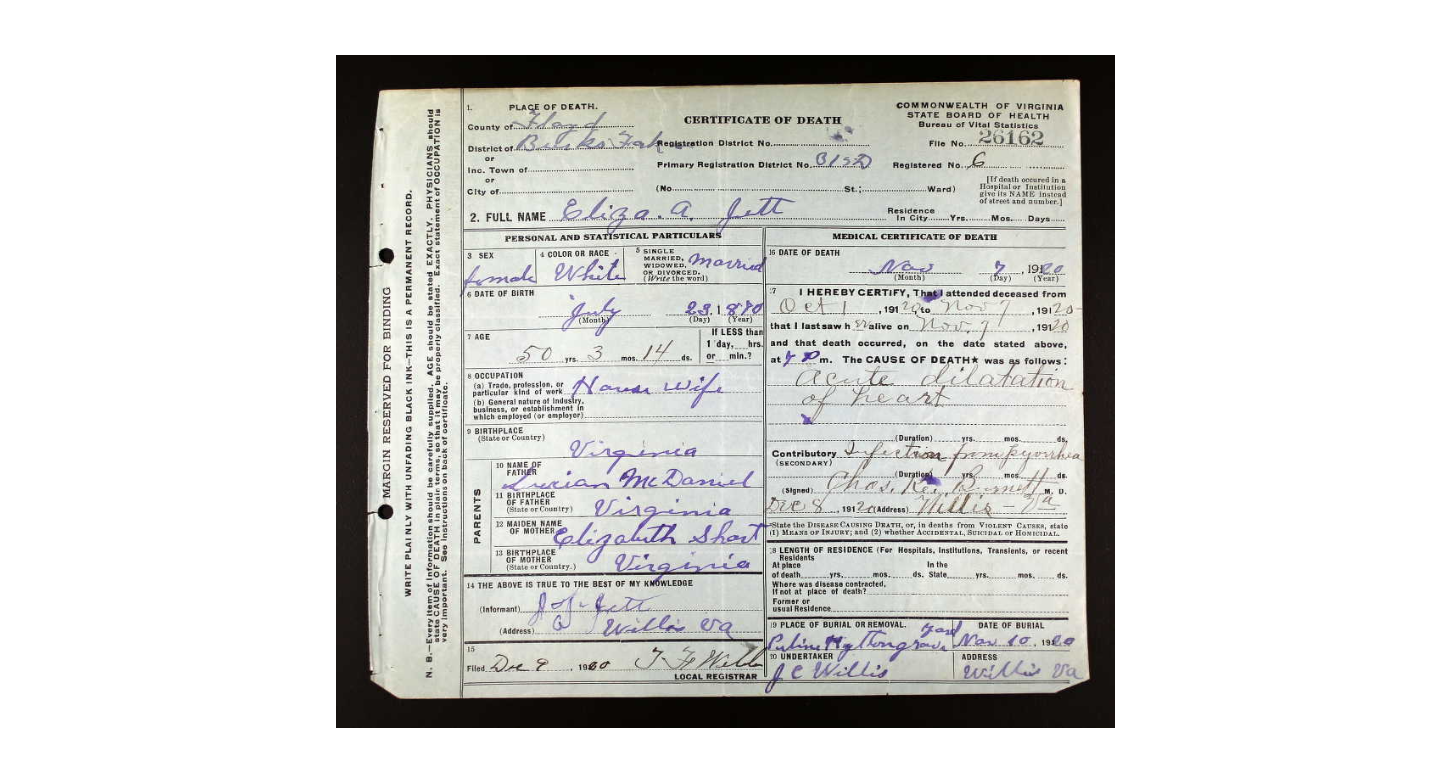 MARGIN RESERVED FOR BINDING
WRITE PLAINLY WITH UNFADING BLACK INK—THIS IS A PERMANENT RECORD.
N. B.—Every item of information should be carefully supplied. AGE should be stated EXACTLY. PHYSICIANS should
state CAUSE OF DEATH in plain terms, so that it may be properly classified. Exact statement of OCCUPATION is
very important. See instructions on back of certificate.
1. PLACE OF DEATH.
County of Floyd
District of Burks Fork
or
Inc. Town of
or
City of
CERTIFICATE OF DEATH
Registration District No.
Primary Registration District No.
(No. St.; Ward)
COMMONWEALTH OF VIRGINIA
STATE BOARD OF HEALTH
Bureau of Vital Statistics
File No. 26162
Registered No. 6
[If death occured in a
Hospital or Institution
give its NAME instead
of street and number.]
2. FULL NAME Eliza. A. Jett
Residence
In City Yrs. Mos. Days
PERSONAL AND STATISTICAL PARTICULARS
3 SEX
female
4 COLOR OR RACE
White
5 SINGLE
MARRIED,
WIDOWED,
OR DIVORCED.
(Write the word)
Married
6 DATE OF BIRTH
July 23. 1870
(Month) (Day) (Year)
7 AGE
50 yrs. 3 mos. 14 ds.
If LESS than
1 day, hrs.
or min.?
8 OCCUPATION
(a) Trade, profession, or
particular kind of work House wife
(b) General nature of industry,
business, or establishment in
which employed (or employer)
9 BIRTHPLACE
(State or Country)
Virginia
PARENTS
10 NAME OF
FATHER
McDaniel
11 BIRTHPLACE
OF FATHER
(State or Country)
Virginia
12 MAIDEN NAME
OF MOTHER
Elizabeth Short
13 BIRTHPLACE
OF MOTHER
(State or Country.)
Virginia
14 THE ABOVE IS TRUE TO THE BEST OF MY KNOWLEDGE
(Informant) Jett
(Address) Willis Va
15
Filed Dec 9, 1920
LOCAL REGISTRAR
MEDICAL CERTIFICATE OF DEATH
16 DATE OF DEATH
Nov 7, 1920
(Month) (Day) (Year)
17 I HEREBY CERTIFY, That I attended deceased from
Oct 1, 19120, to Nov 7, 19120
that I last saw h er alive on Nov. 7, 19120
and that death occurred, on the date stated above,
at m. The CAUSE OF DEATH★ was as follows:
Acute dilatation
of heart
(Duration) yrs. mos. ds.
Contributory Infection from pyorrhea
(SECONDARY)
(Duration) yrs. mos. ds.
(Signed) Chas. Burnett M. D.
Dec 8, 19120 (Address) Willis - Va
*State the DISEASE CAUSING DEATH, or, in deaths from VIOLENT CAUSES, state
(1) MEANS OF INJURY; and (2) whether ACCIDENTAL, SUICIDAL or HOMICIDAL.
18 LENGTH OF RESIDENCE (For Hospitals, Institutions, Transients, or recent
Residents
At place In the
of death yrs. mos. ds. State yrs. mos. ds.
Where was disease contracted,
If not at place of death?
Former or
usual Residence
19 PLACE OF BURIAL OR REMOVAL.
Hylton grave yard
DATE OF BURIAL
Nov. 10, 1920
20 UNDERTAKER
J C Willis
ADDRESS
Willis Va